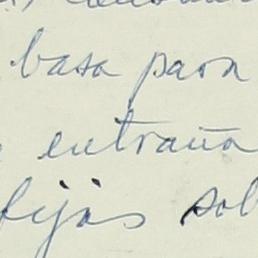 basa para
entraña
fijas sol